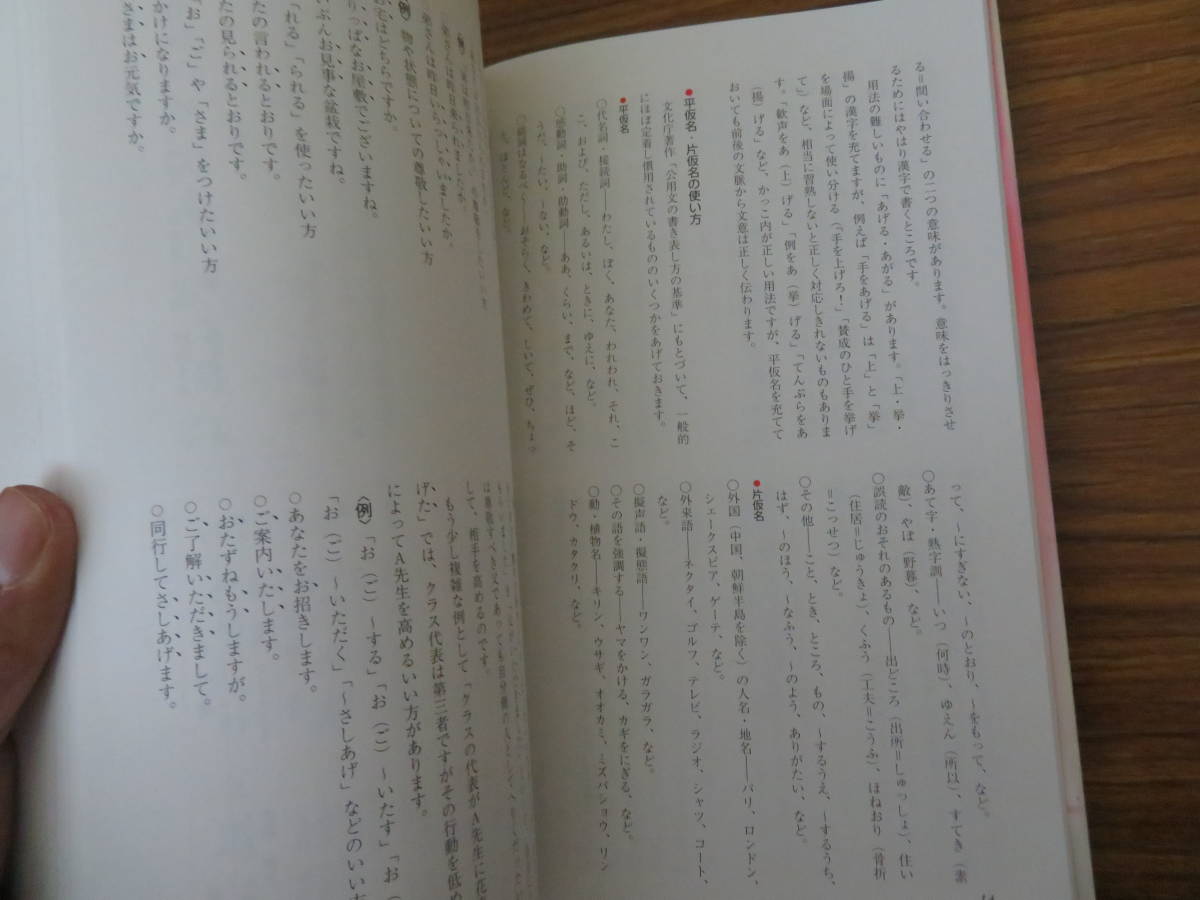 る＝問い合わせる」の二つの意味があります。意味をはっきりさせ
るためにはやはり漢字で書くところです。
用法の難しいものに「あげる・あがる」があります。「上・挙・
揚」の漢字を充てますが、例えば「手をあげる」は「上」と「挙」
を場面によって使い分ける（「手を上げろ！」「賛成のひと手を挙げ
て」）など、相当に習熟しないと正しく対応しきれないものもありま
す。「歓声をあ（上）げる」「例をあ（挙）げる」「てんぷらをあ
（揚）げる」など、かっこ内が正しい用法ですが、平仮名を充てて
おいても前後の文脈から文意は正しく伝わります。
●平仮名・片仮名の使い方
文化庁著作「公用文の書き表し方の基準」にもとづいて、一般的
にほぼ定着し慣用されているもののいくつかをあげておきます。
●平仮名
○代名詞・接続詞――わたし、ぼく、あなた、われわれ、それ、こ
こ、および、ただし、あるいは、ときに、ゆえに、など。
○感動詞・助詞・助動詞――ああ、くらい、まで、など、ほど、そ
うだ、〜たい、〜ない、など。
○副詞はなるべく――おそらく、きわめて、しいて、ぜひ、ちょっ
と、ほとんど、など。
って、〜にすぎない、〜のとおり、〜をもって、など。
○あて字・熟字訓――いつ（何時）、ゆえん（所以）、すてき（素
敵）、やぼ（野暮）、など。
○誤読のおそれのあるもの――出どころ（出所＝しゅっしょ）、住い
（住居＝じゅうきょ）、くふう（工夫＝こうふ）、ほねおり（骨折
＝こっせつ）など。
○その他――こと、とき、ところ、もの、〜するうえ、〜するうち、
はず、〜のほう、〜なふう、〜のよう、ありがたい、など。
●片仮名
○外国（中国、朝鮮半島を除く）の人名・地名――パリ、ロンドン、
シェークスピア、ゲーテ、など。
○外来語――ネクタイ、ゴルフ、テレビ、ラジオ、シャツ、コート、
など。
○擬声語・擬態語――ワンワン、ガラガラ、など。
○その語を強調する――ヤマをかける、カギをにぎる、など。
○動・植物名――キリン、ウサギ、オオカミ、ミズバショウ、リン
ドウ、カタクリ、など。
さんは昨日いらっしゃいましたか。
〈例〉物や状態についての尊敬したいい方
お宅はどちらですか。
っぱなお屋敷でございますね。
いぶんお見事な盆栽ですね。
れる」「られる」を使ったいい方
たの言われるとおりです。
たの見られるとおりです。
「お」「ご」や「さま」をつけたいい方
かけになりますか。
さまはお元気ですか。
して、相手を高めるのです。
もう少し複雑な例として「クラスの代表がA先生に花
げた」では、クラス代表は第三者ですがその行動を低め
によってA先生を高めるいい方があります。
〈例〉「お（ご）〜する」「お（ご）〜いたす」「お（
「お（ご）〜いただく」「〜さしあげ」などのいい方
○あなたをお招きします。
○ご案内いたします。
○おたずねもうしますが。
○ご了解いただきまして。
○同行してさしあげます。